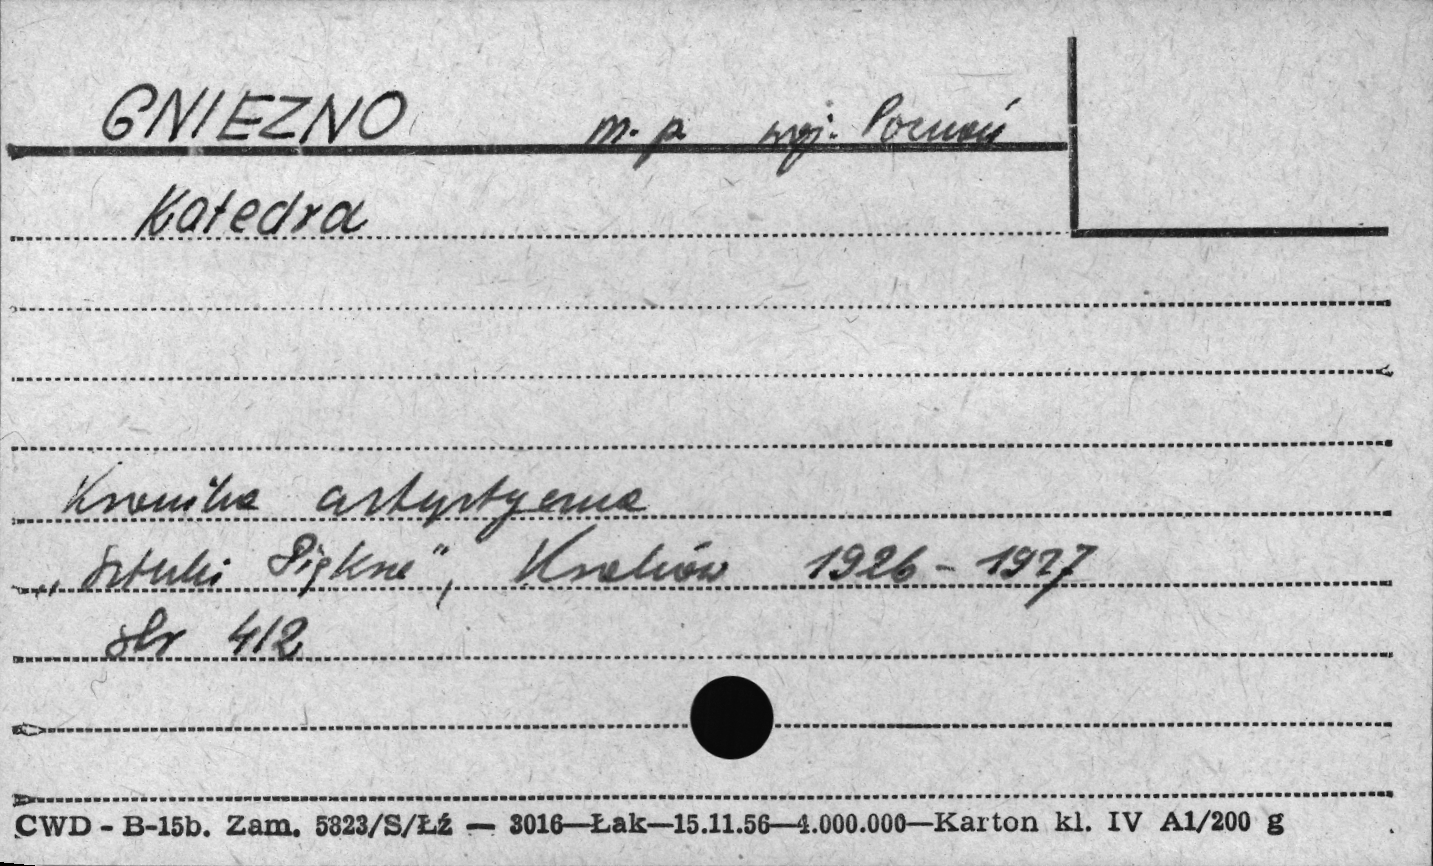 GNIEZNO m. p. woj. Poznań
Katedra
Kronika artystyczna
„Sztuki Piękne", Kraków 1926-1927
str 412
CWD - B-15b. Zam. 5823/S/Łź — 3016—Łak—15.11.56—4.000.000—Karton kl. IV A1/200 g